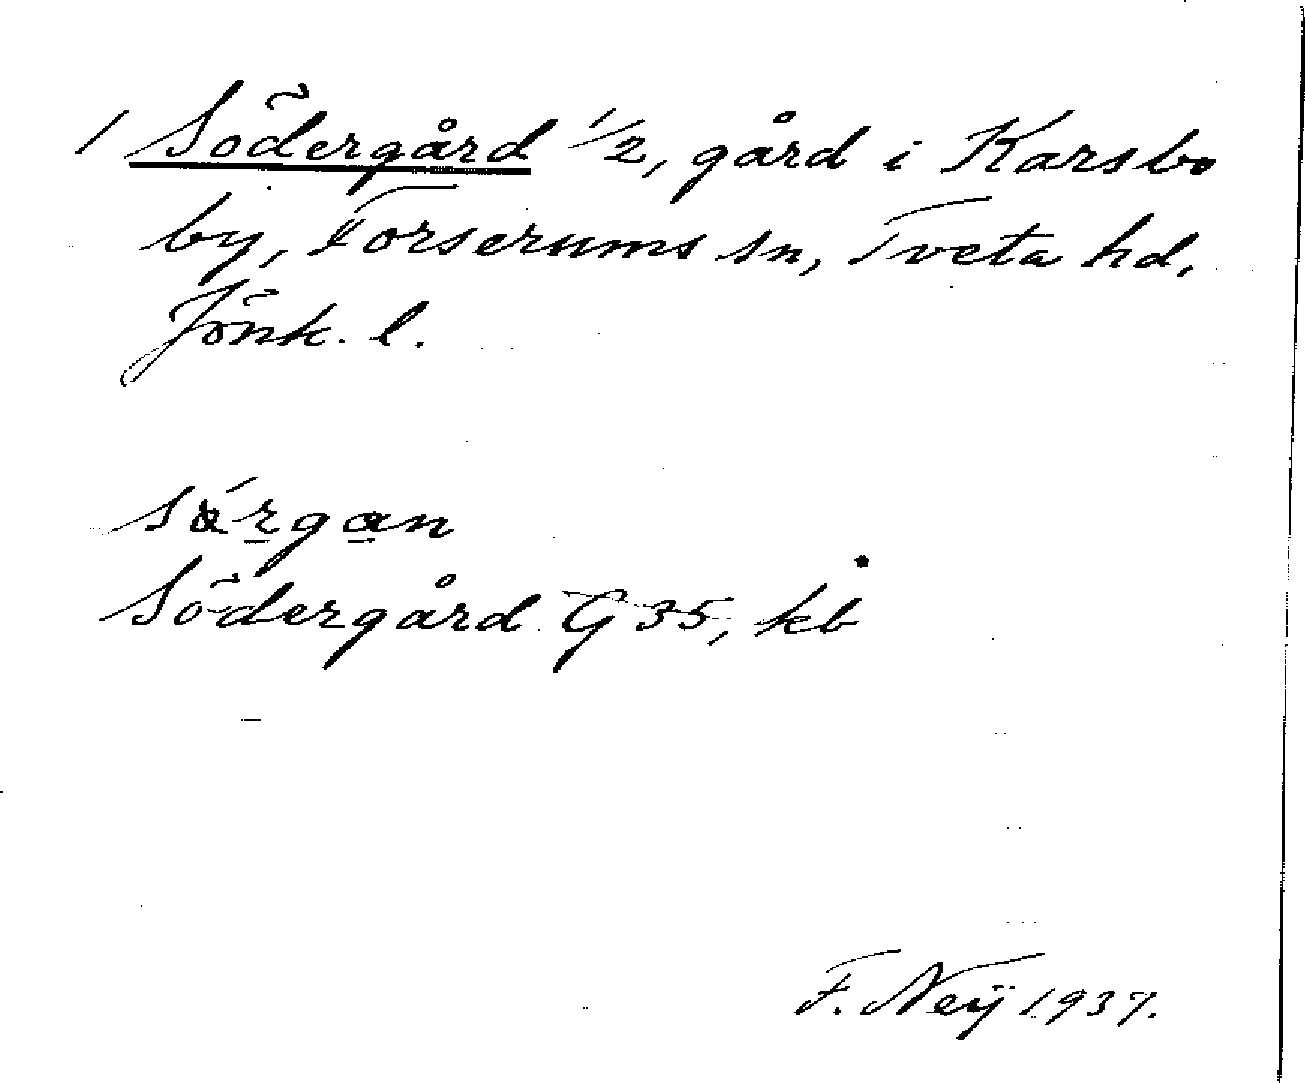 / Södergård 1/2, gård i Karsbo
by, Forserums sn, Tveta hd,
Jönk. l.
Södergård G 35, kb
F. Neÿ 1937.